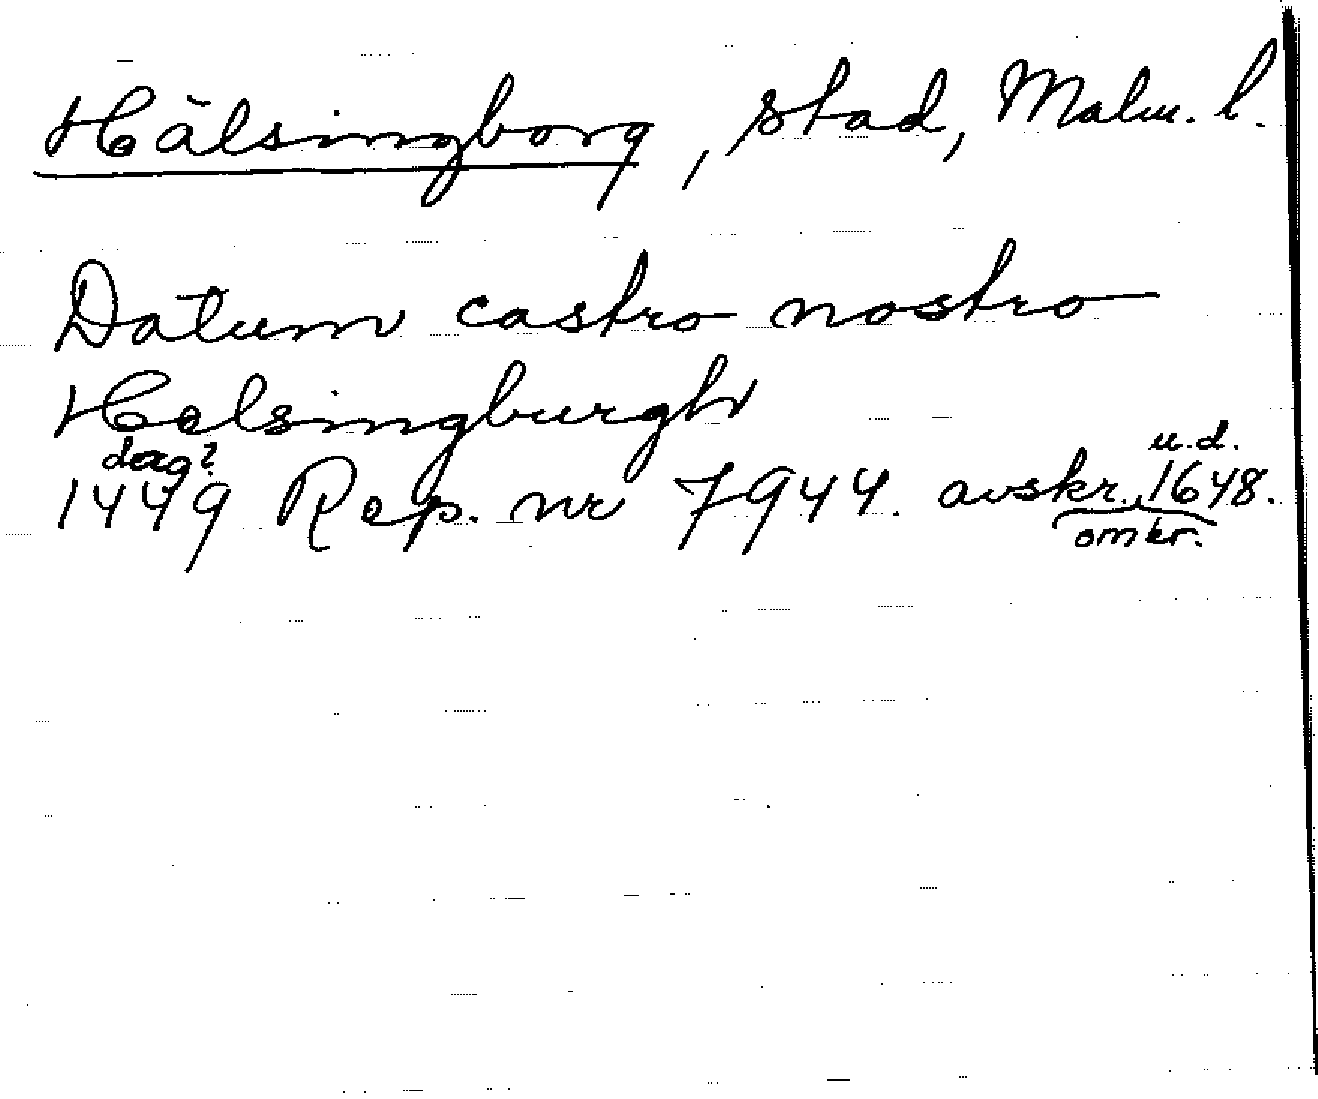 Hälsingborg, stad, Malm. l.
Datum castro nostro
Helsingburgh
dag?
u.d.
1449 Rep. nr 7944. avskr. 1648.
omkr.